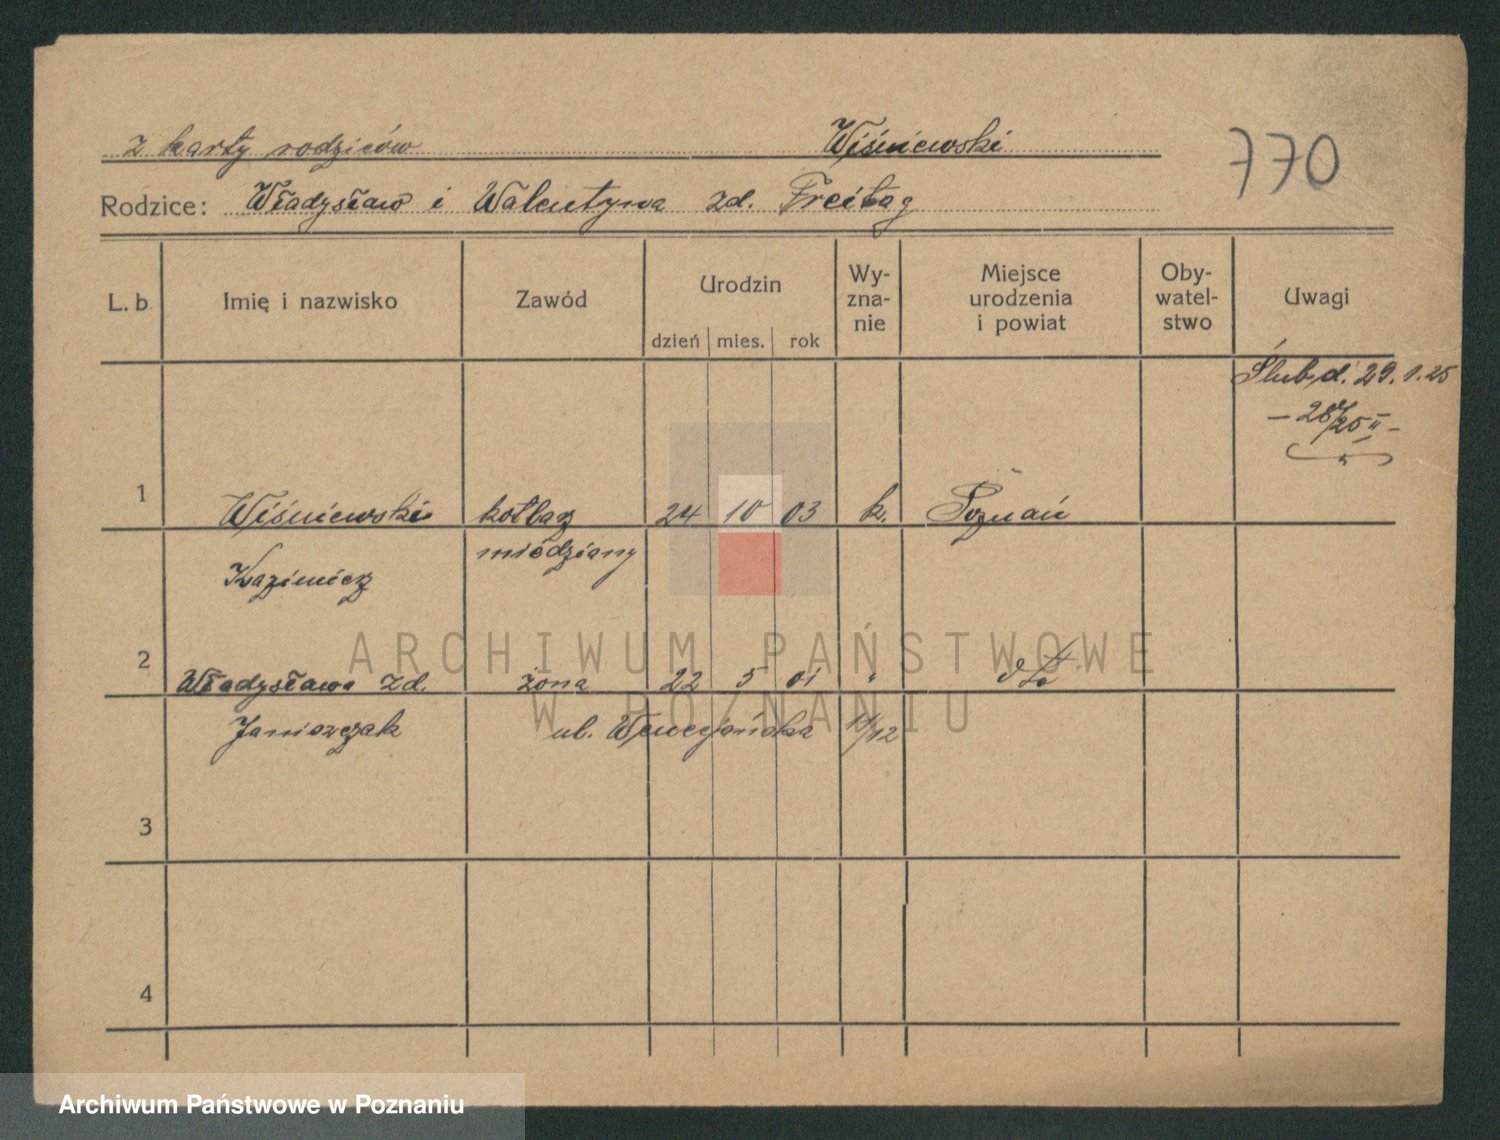 z karty rodziców Wiśniewski
770
Rodzice: Władysław i Walentyna zd. Freitag
L. b. Imię i nazwisko Zawód Urodzin Wy- Miejsce Oby- Uwagi
zna- urodzenia watel-
nie i powiat stwo
dzień mies. rok
Ślub d. 29.1.25
1 Wiśniewski kotlarz 24 10 03 k. Poznań
miedziany
Kazimierz
ARCHIWUM PAŃSTWOWE
2 Władysława zd. żona 22 5 01 " dto
W POZNANIU
Janiszczak ul. Wenecjańska 11/12
3
4
Archiwum Państwowe w Poznaniu